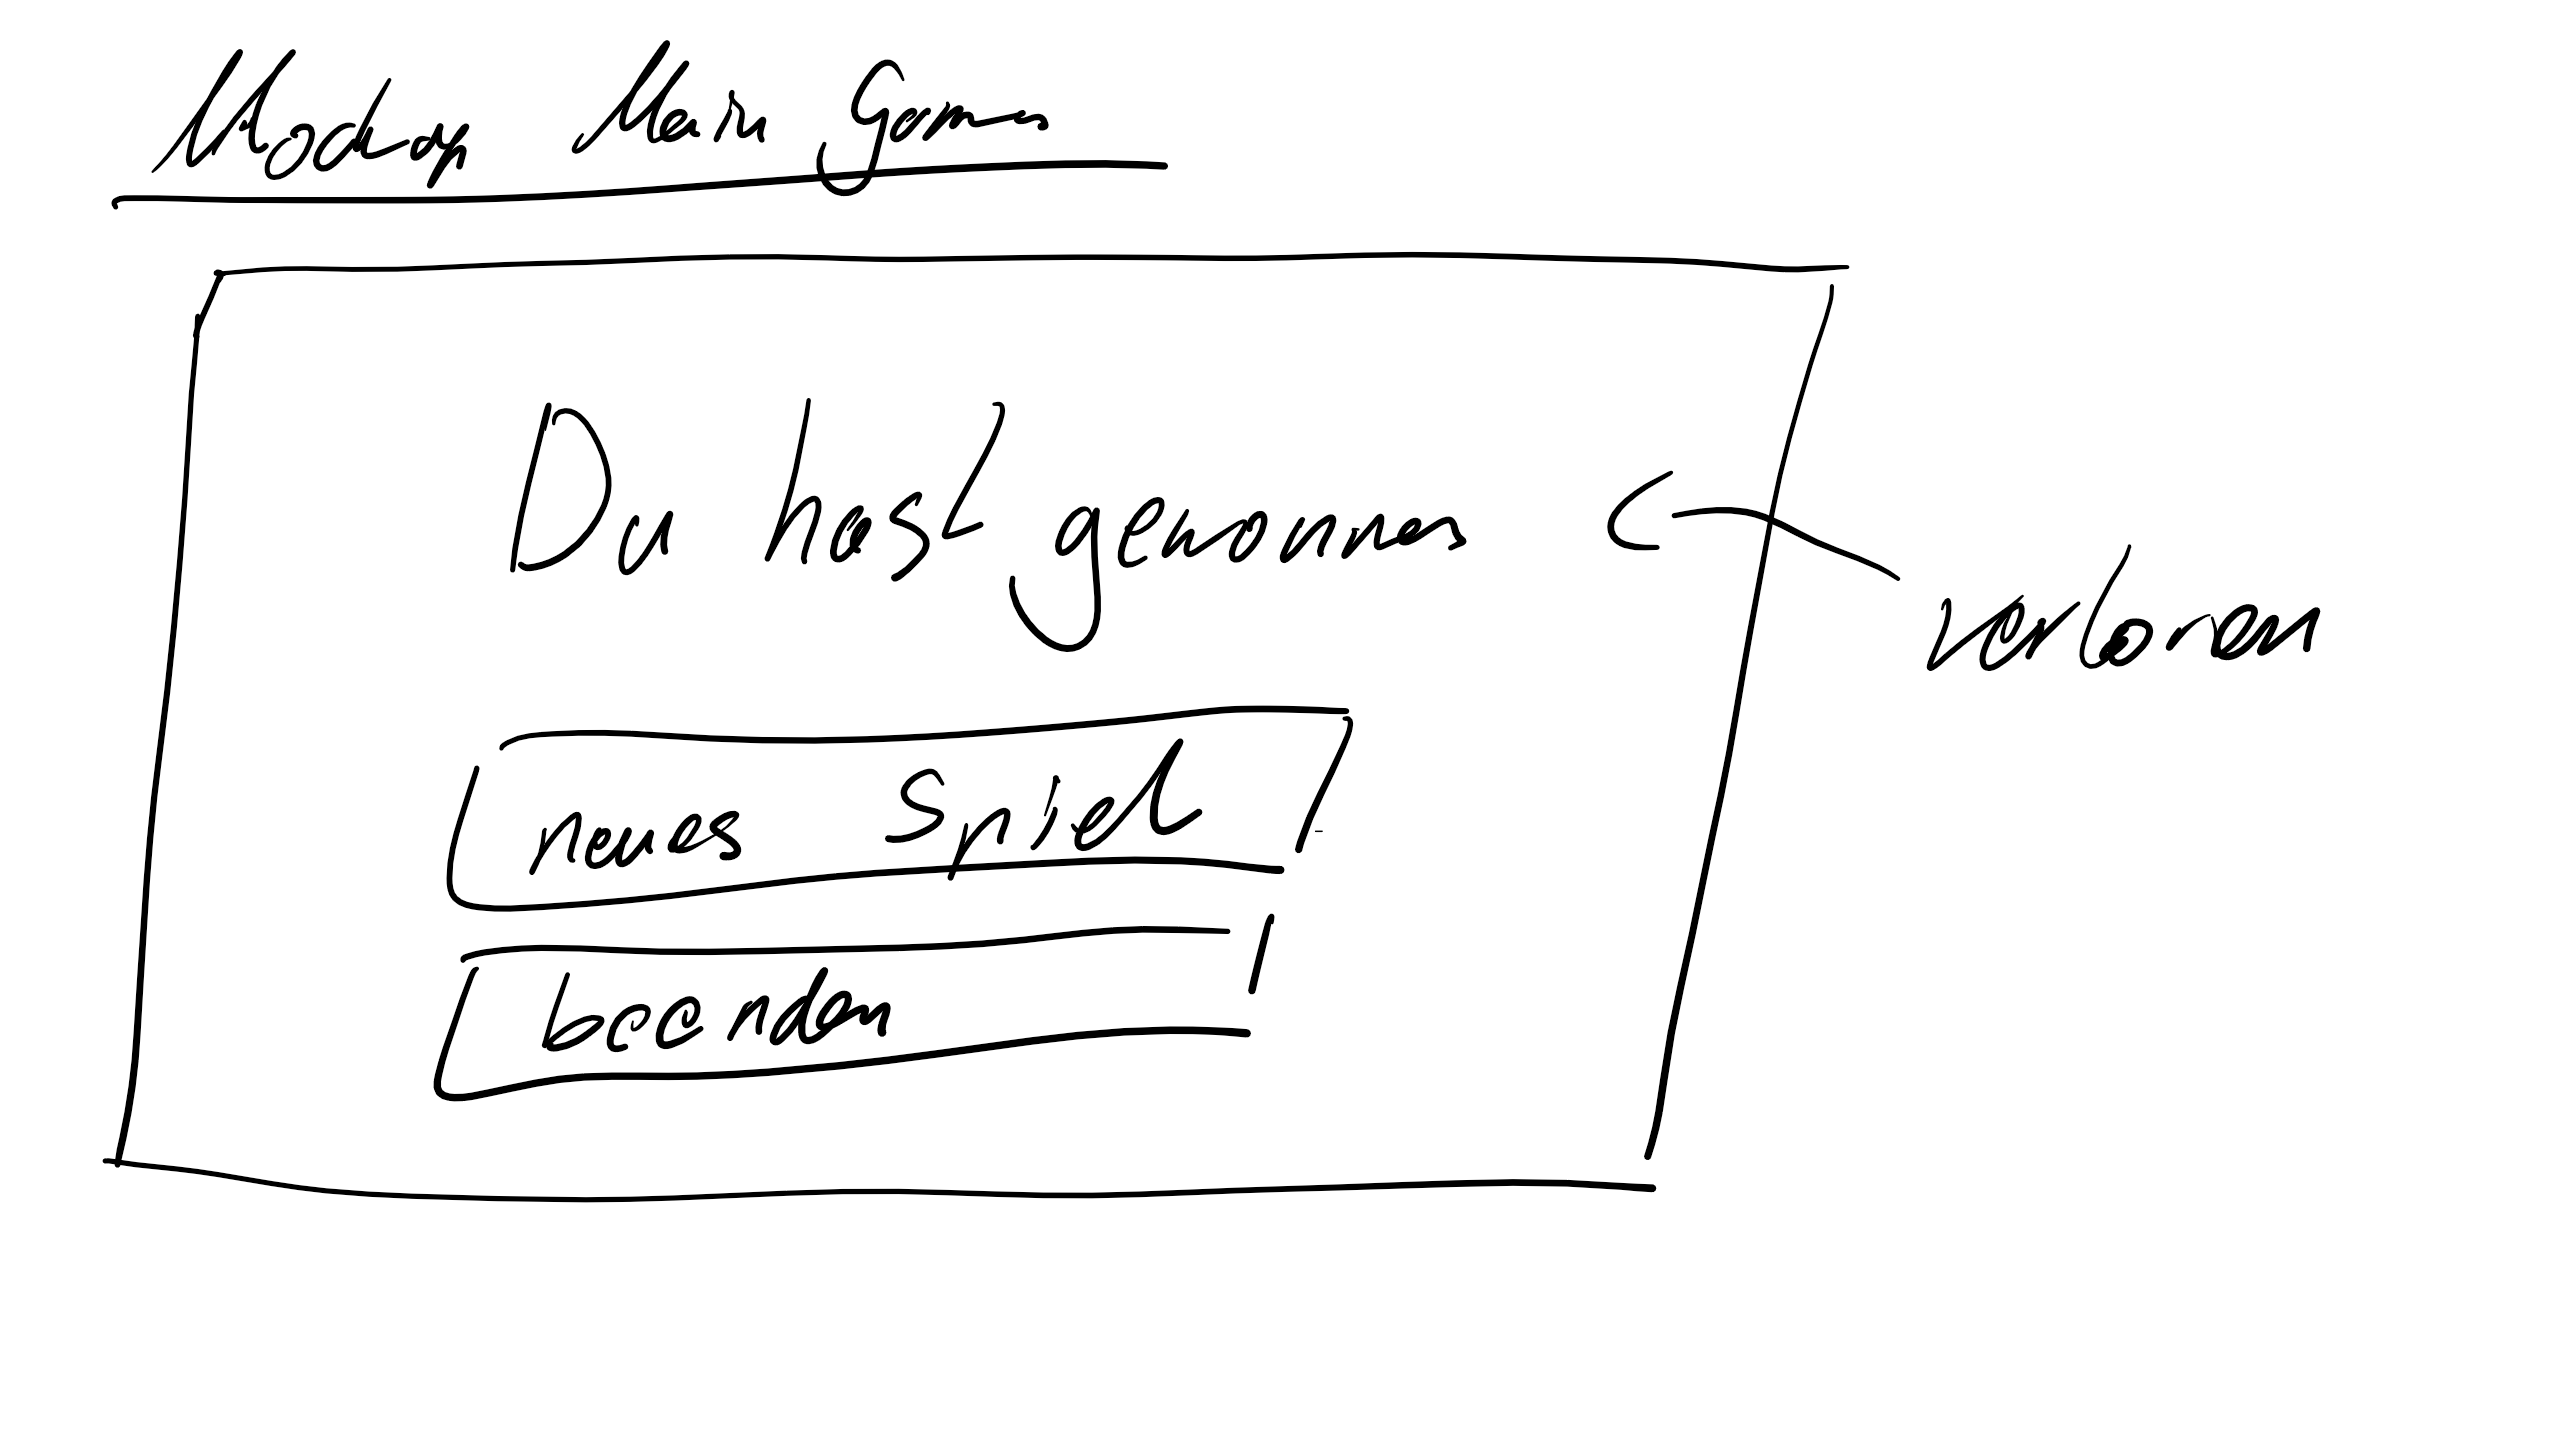 Mockup Main Game
Du hast gewonnen
verloren
neues Spiel
beenden